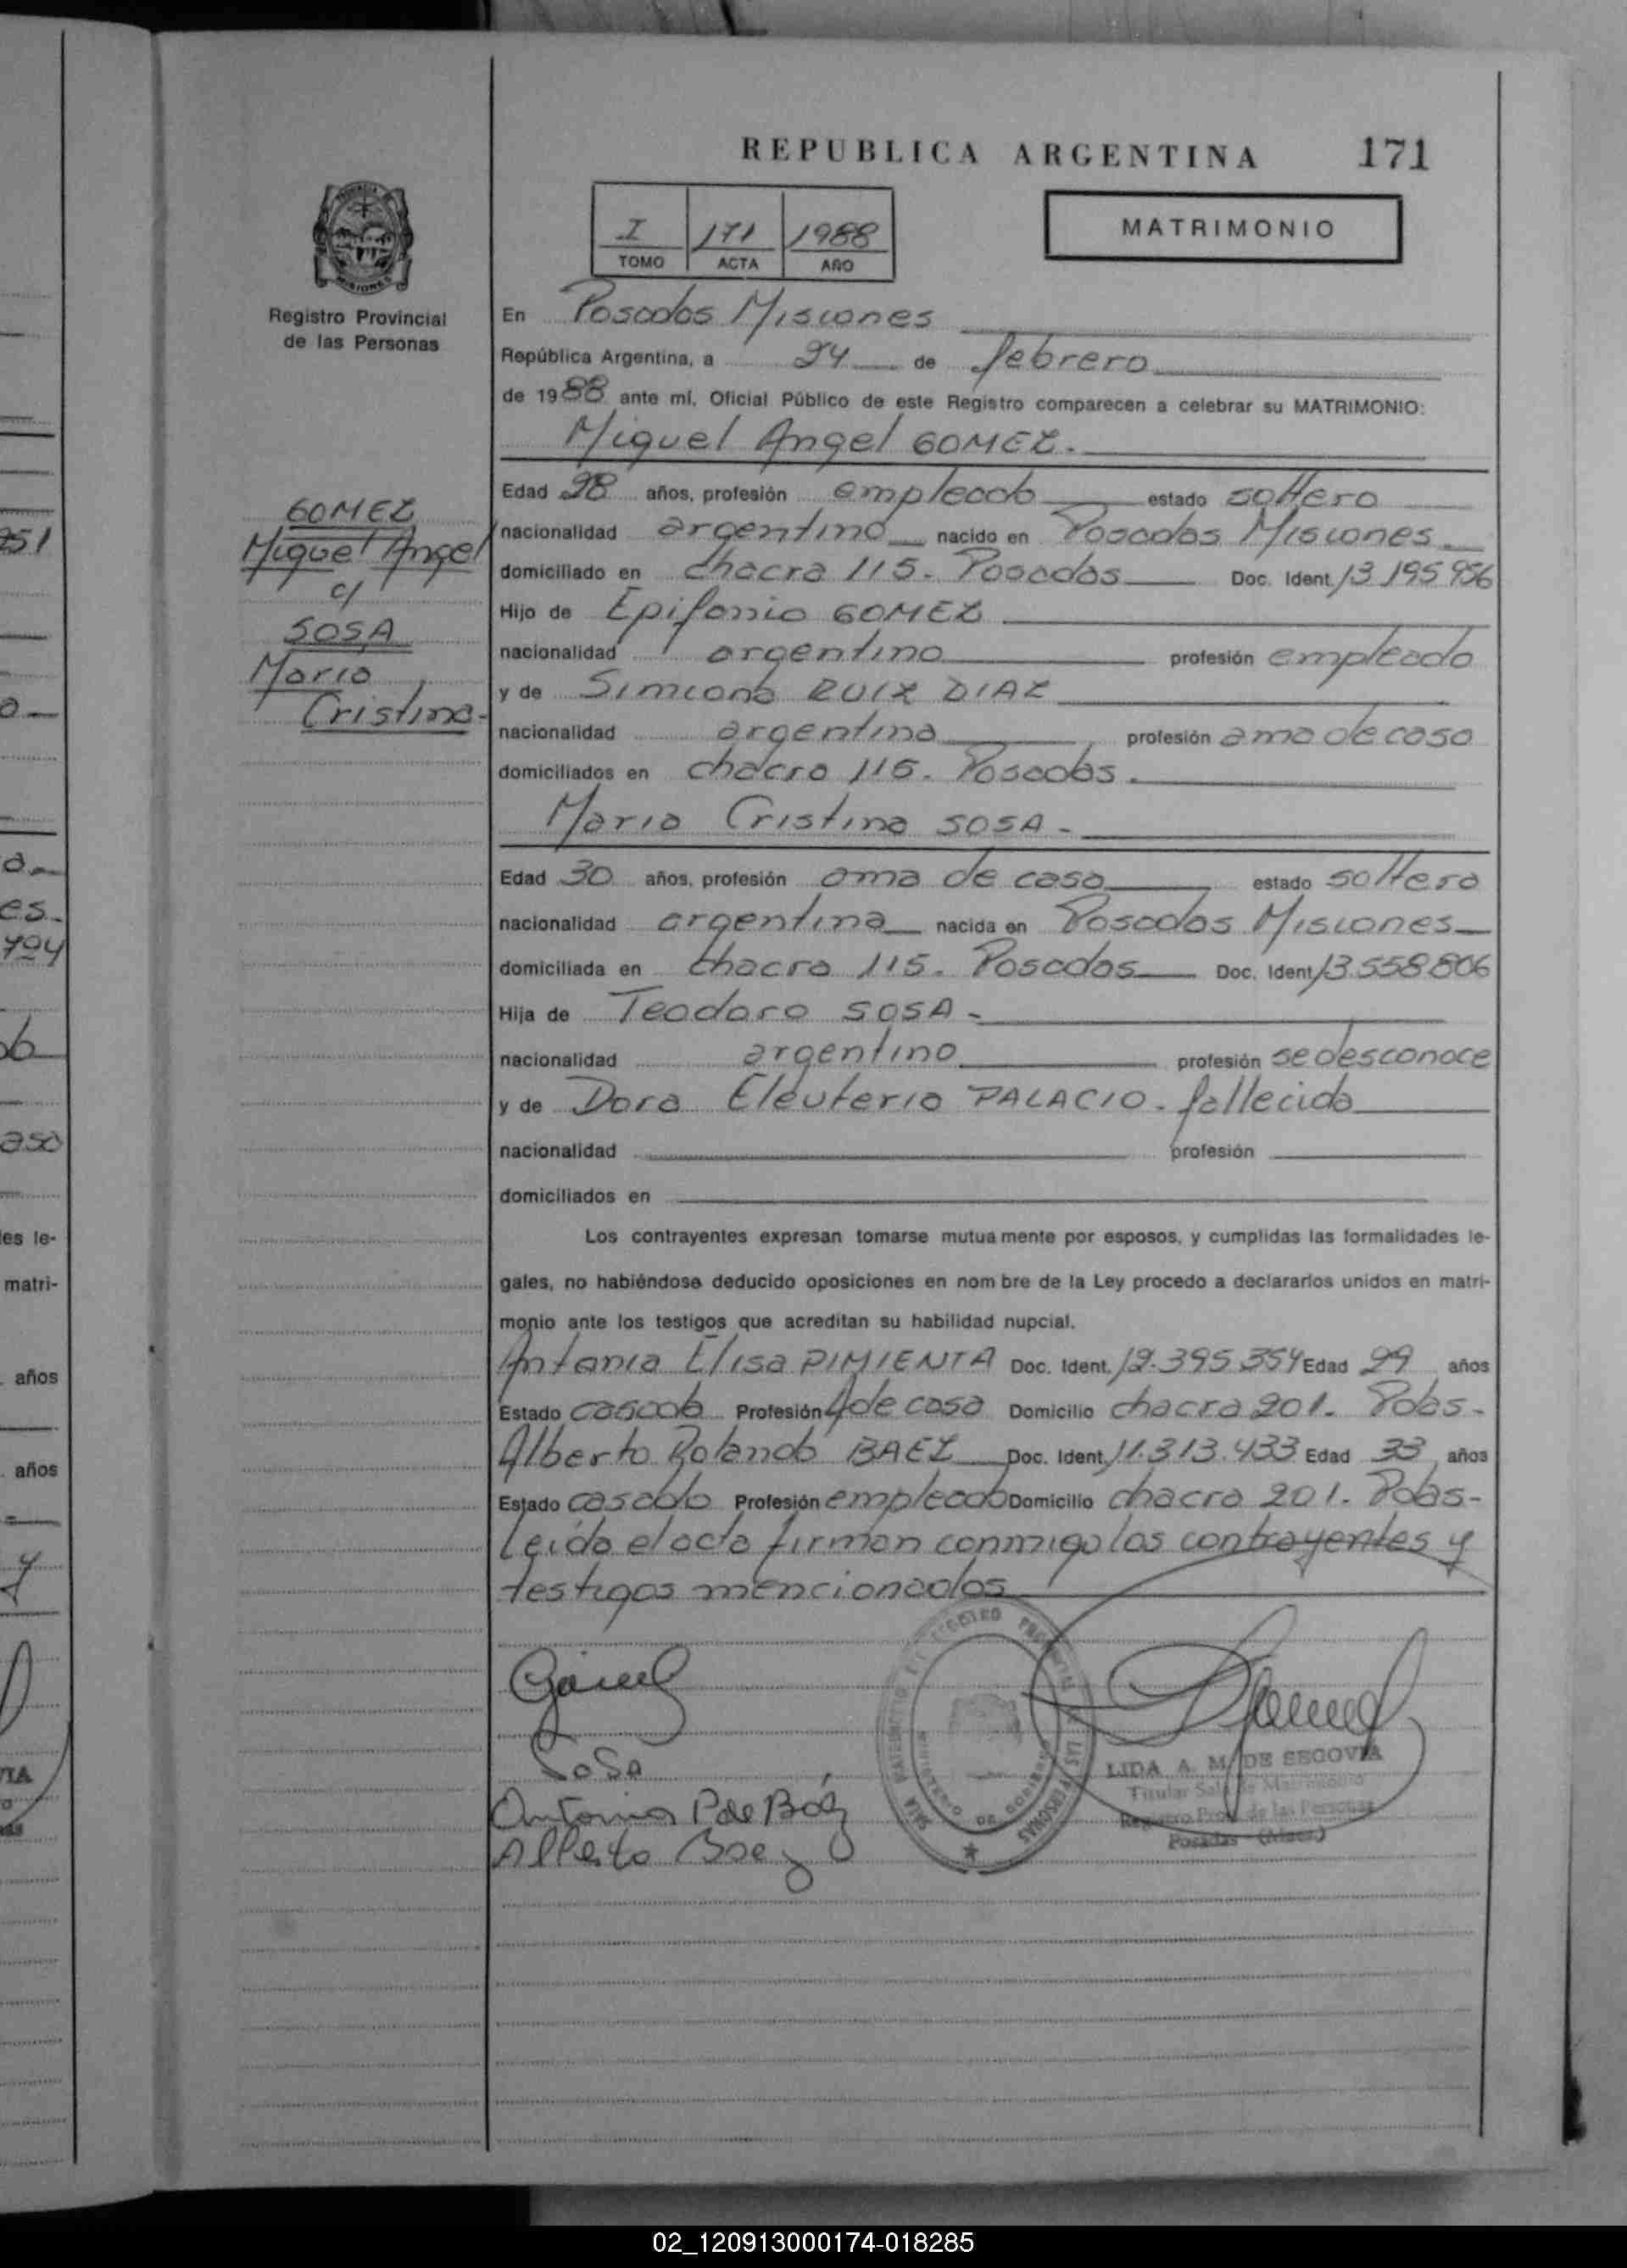 REPUBLICA ARGENTINA 171
MATRIMONIO
I 171 1988
TOMO ACTA AÑO
MISIONES
Registro Provincial
de las Personas
En Posadas Misiones
República Argentina, a 24 de febrero
de 1988 ante mí, Oficial Público de este Registro comparecen a celebrar su MATRIMONIO:
Miguel Angel GOMEZ.
Edad 28 años, profesión empleado estado soltero
nacionalidad argentino nacido en Posadas Misiones
domiciliado en chacra 115. Posadas Doc. Ident. 13.195.956
Hijo de Epifanio GOMEZ
nacionalidad argentino profesión empleado
y de Simeona RUIZ DIAZ
nacionalidad argentina profesión ama de casa
domiciliados en chacra 115. Posadas.
Maria Cristina SOSA-
Edad 30 años, profesión ama de casa estado soltera
nacionalidad argentina nacida en Posadas Misiones
domiciliada en chacra 115. Posadas Doc. Ident. 13.558.806
Hija de Teodoro SOSA-
nacionalidad argentino profesión se desconoce
y de Dora Eleuteria PALACIO. fallecida
nacionalidad profesión
domiciliados en
Los contrayentes expresan tomarse mutuamente por esposos, y cumplidas las formalidades le-
gales, no habiéndose deducido oposiciones en nombre de la Ley procedo a declararlos unidos en matri-
monio ante los testigos que acreditan su habilidad nupcial.
Antonia Elisa PIMIENTA Doc. Ident. 12.395.354 Edad 29 años
Estado casada Profesión A de casa Domicilio chacra 201. Pdas-
Alberto Rolando BAEZ Doc. Ident. 11.313.433 Edad 33 años
Estado casado Profesión empleado Domicilio chacra 201. Pdas-
Leida el acta firman conmigo los contrayentes y
testigos mencionados
Sosa
Antonia P de Báez
Alberto Baez
LIDA A. M. DE SEGOVIA
Titular Sala de Matrimonio
Registro Prov. de las Personas
Posadas (Mnes.)
GOMEZ
Miguel Angel
c/
SOSA
Maria
Cristina-
251
794
es le-
matri-
años
años
02_120913000174-018285